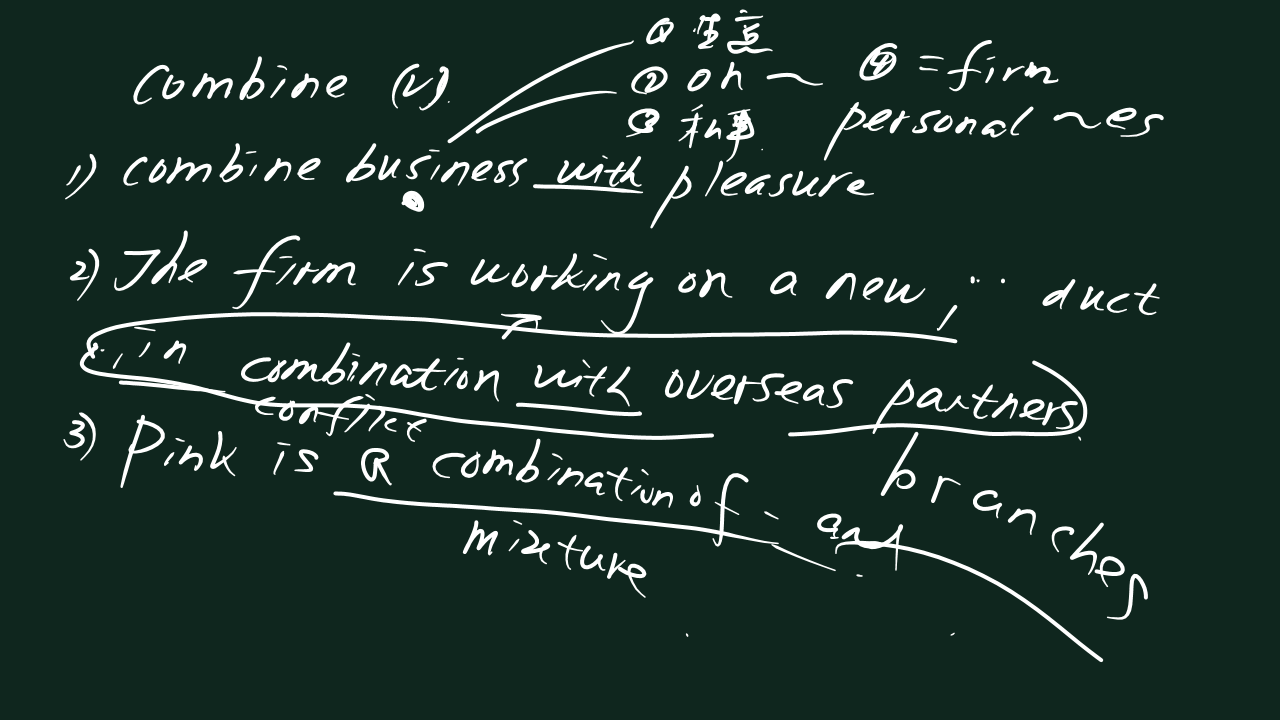 ① 生意
combine (v). ② on ~ ④ = firm
③ 私事. personal ~es
1) combine business with pleasure
2) The firm is working on a new duct
in combination with overseas partners.
conflict branches
3) Pink is a combination of - and
mixture